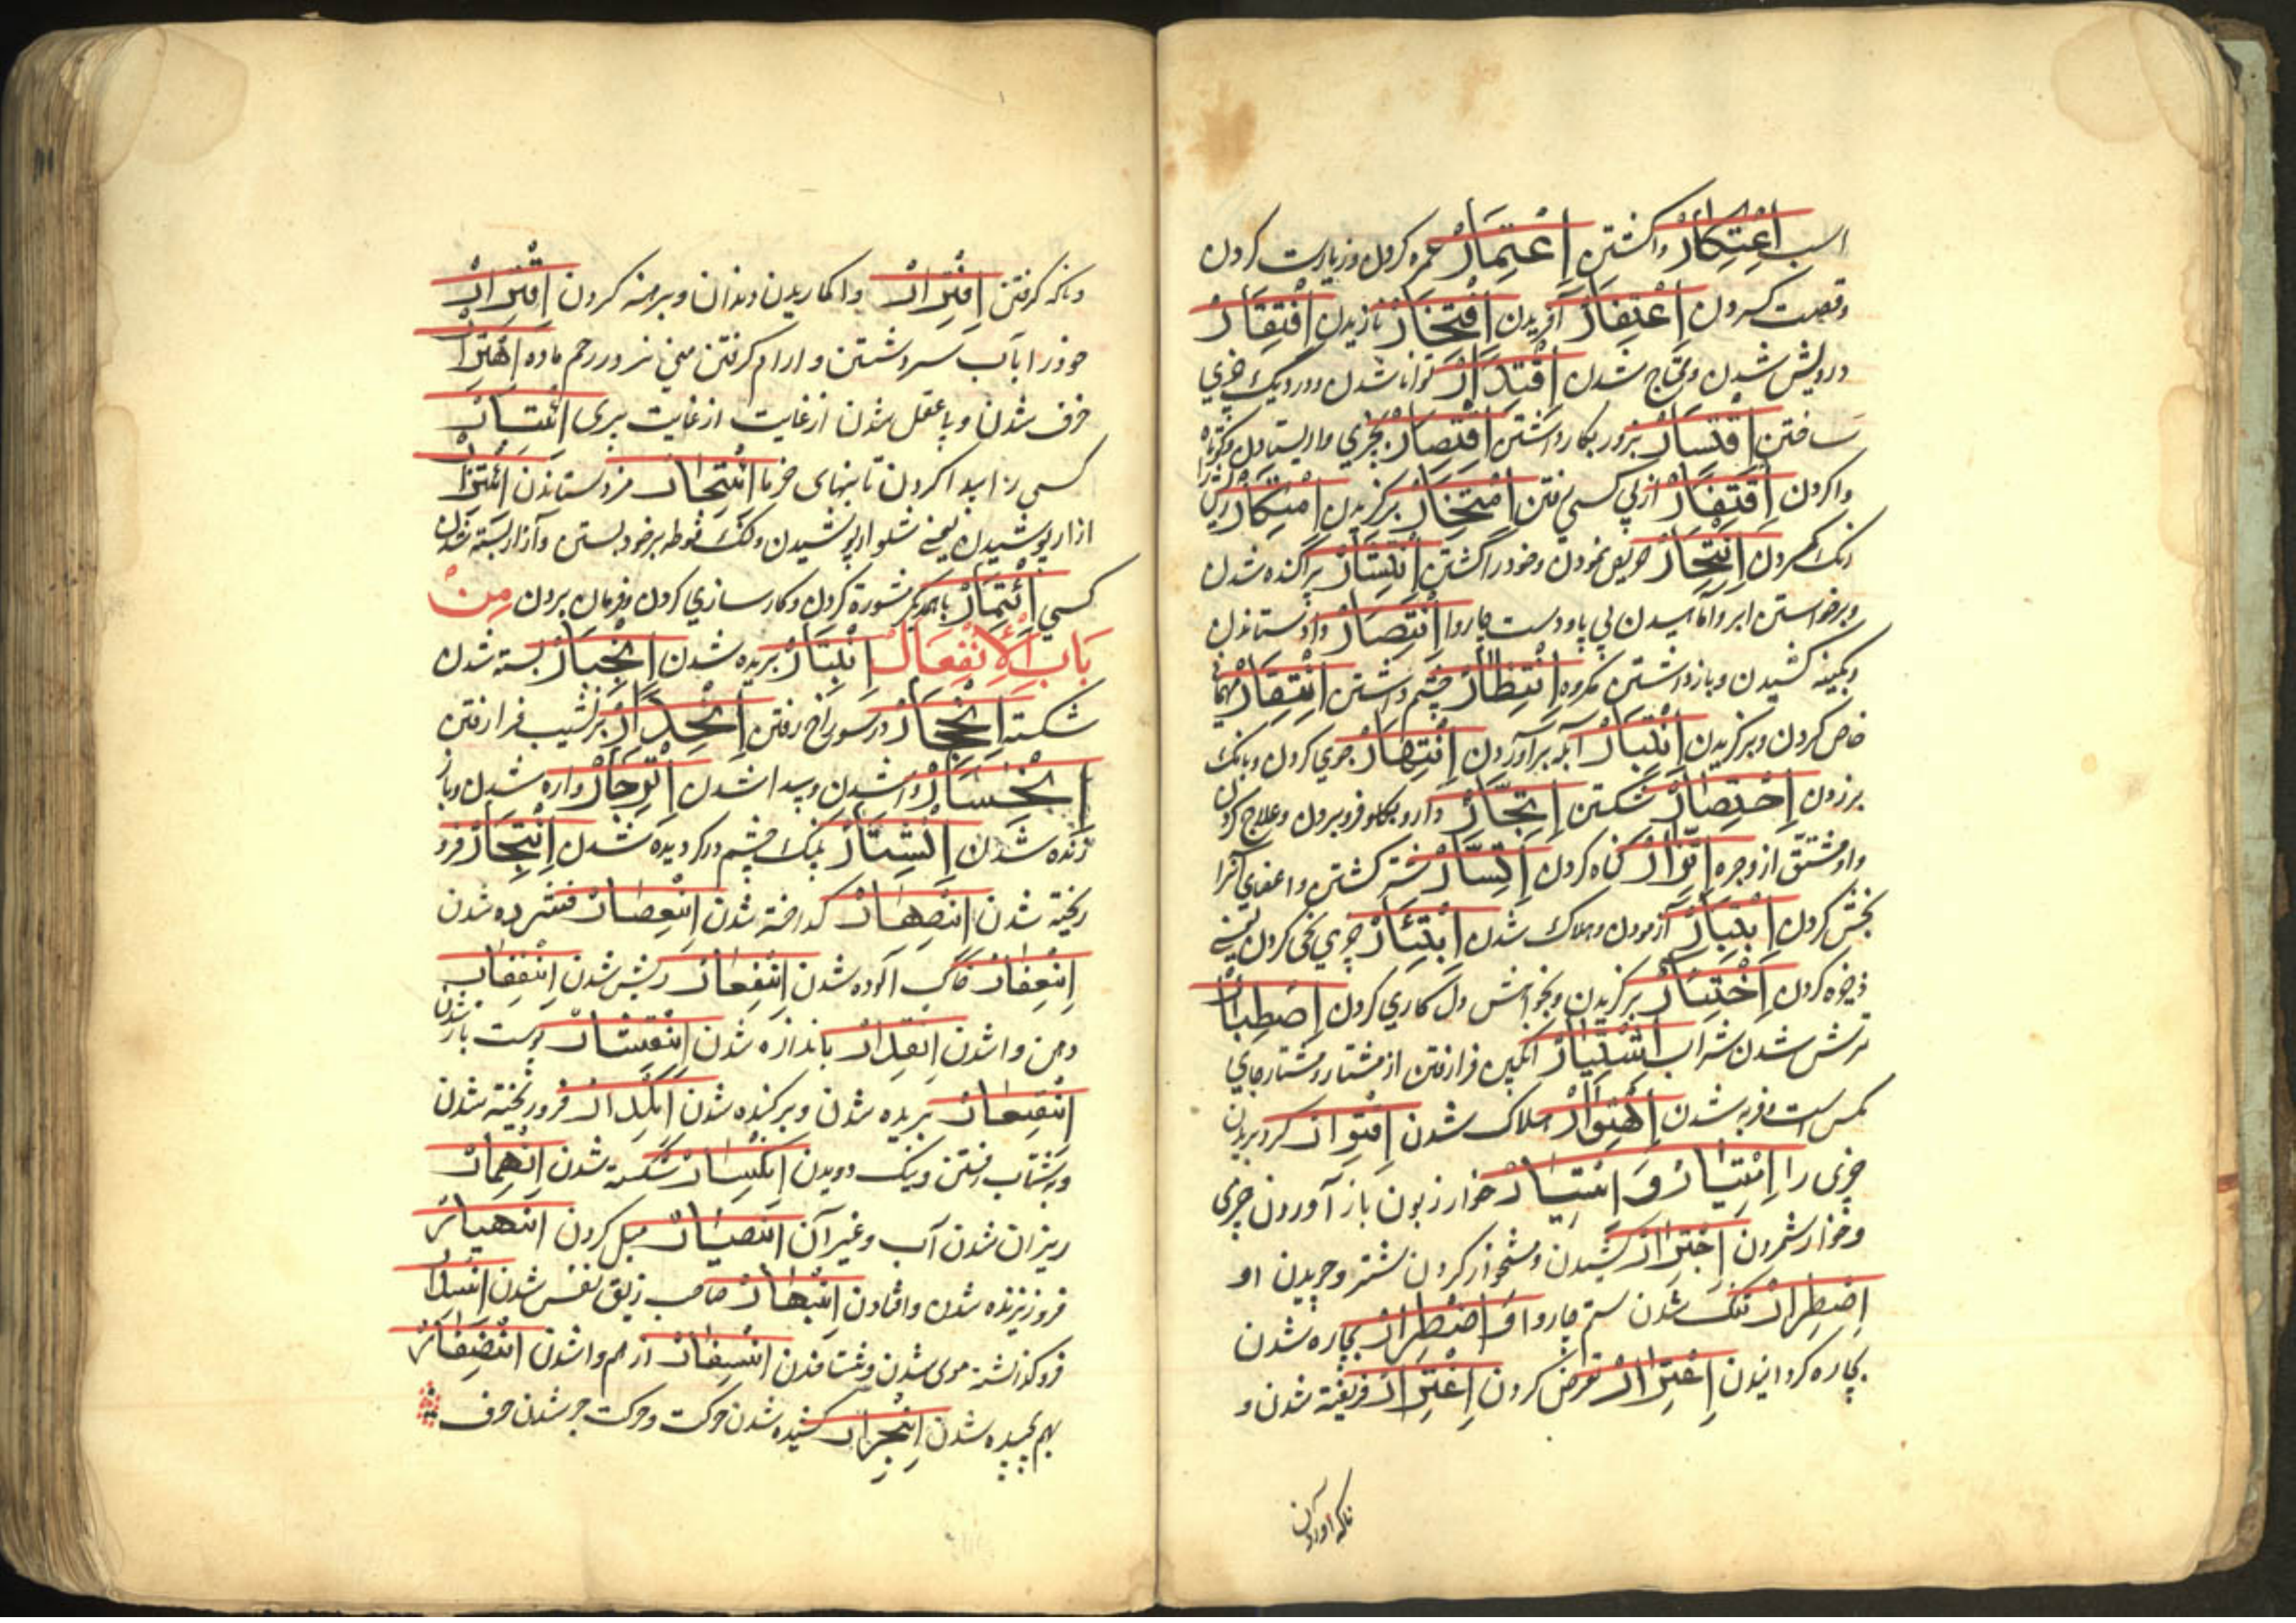 اسب اِعْتِكَارْ واكشتن اِعْتِمَارْ عمره كردن و زيارت كردن
وقصت كردن اِعْتِفَارْ آفريدن اِفْتِخَارْ نازيدن اِفْتِقَارْ
درويش شدن ومحتاج شدن اِقْتِدَارْ توانا شدن ودرديك چيزى
ساختن اِقْتِسَارْ بزور بكار داشتن اِقْتِصَارْ بچيزى وا ايستادن وكوتاه
واكردن اِقْتِفَارْ از پى كسى رفتن اِمْتِخَارْ بركزيدن اِمْتِكَارْ
اِنْتِحَارْ حريص نمودن وخود را كشتن اِنْتِشَارْ پراكنده شدن
وبرخواستن ابر وآماسيدن پى پا ودست چاروا اِنْتِصَارْ داد ستاندن
وبكينه كشيدن وباز داشتن مكروه اِنْتِظَارْ چشم داشتن اِنْتِقَارْ
خاص كردن وبركزيدن اِنْتِبَارْ آبله برآوردن اِنْتِهَارْ جوى كردن وبانك
برزدن اِخْتِضَارْ شكستن اِتِّجَارْ دارو بكلو فرو بردن وعلاج كردن
واو مشتق از وجره اِتِّزَارْ كناه كردن اِتِّسَارْ شتر كشتن واعضاى آنرا
بخش كردن اِبْتِيَارْ آزمودن وهلاك شدن اِبْتِئَارْ چيزى نخى كردن يعنى
ذخيره كردن اِخْتِيَارْ بركزيدن وبخواهش دل كارى كردن اِصْطِبَارْ
ترش شدن شراب اِشْتِيَارْ انكبين فرا رفتن از مشتار ومشتار جاى
مكس است وفربه شدن اِهْتِوَارْ هلاك شدن اِقْتِوَارْ كرد بريدن
چيزى را اِمْتِيَارْ وَ اِئْتِيَارْ خوار زبون باز آوردن چيزى
وخوار شمردن اِجْتِرَارْ كشيدن ومشخوار كردن شتر وچريدن او
اِضْطِرَارْ تنك شدن ستم چاروا وَ اِضْطِرَارْ بيچاره شدن
بيچاره كردانيدن اِعْتِرَارْ تعرض كردن اِغْتِرَارْ فريفته شدن و
ناكه آوردن
وناكه كرفتن اِفْتِرَارْ واكماريدن دندان وبرهنه كردن اِقْتِرَارْ
خود را باب سرد شستن وارام كرفتن منى نر در رحم ماده اِهْتِرَارْ
خرف شدن وبى عقل شدن از غايت از غايت پيرى
كسى را پيدا كردن تا بنهاى خرما مزد ستاندن اِئْتِزَارْ
ازار پوشيدن يعنى شلوار پوشيدن ولنك فوطه بر خود بستن وآزار بسته شدن
كسى اِئْتِمَارْ با همديكر مشورة كردن وكار سازى كردن وفرمان بردن مِنْ
بَابِ الْاِنْفِعَالْ اِنْبِتَارْ بريده شدن اِنْجِبَارْ بسته شدن
شكسته اِنْجِحَارْ در سوراخ رفتن اِنْحِدَارْ بر نشيب فرا رفتن
اِنْحِسَارْ وا شدن وپيدا شدن اِنْزِجَارْ واره شدن وباز
زنده شدن اِنْشِتَارْ پلك چشم در كرديده شدن اِنْفِجَارْ فرو
ريخته شدن اِنْصِهَارْ كداخته شدن اِنْعِصَارْ فشرده شدن
اِنْعِفَارْ خاك آلوده شدن ريش شدن
دهن وا شدن اِنْقِدَارْ باندازه شدن اِنْقِشَارْ پوست باز شدن
اِنْقِعَارْ بريده شدن وبركنده شدن اِنْكِدَارْ فرو ريخته شدن
وبشتاب رفتن ونيك دويدن اِنْكِسَارْ شكسته شدن اِنْهِمَارْ
ريزان شدن آب وغير آن اِنْصِيَارْ ميل كردن اِنْهِيَارْ
فرو ريزنده شدن وافتادن اِنْبِهَارْ صاحب زيق نفس شدن اِنْسِدَارْ
فرو كذاشته موى شدن وشتافتن اِنْسِفَارْ از هم وا شدن اِنْضِفَارْ
بهم پيچيده شدن اِنْجِرَارْ كشيده شدن حركت وحركت جر شدن حرف